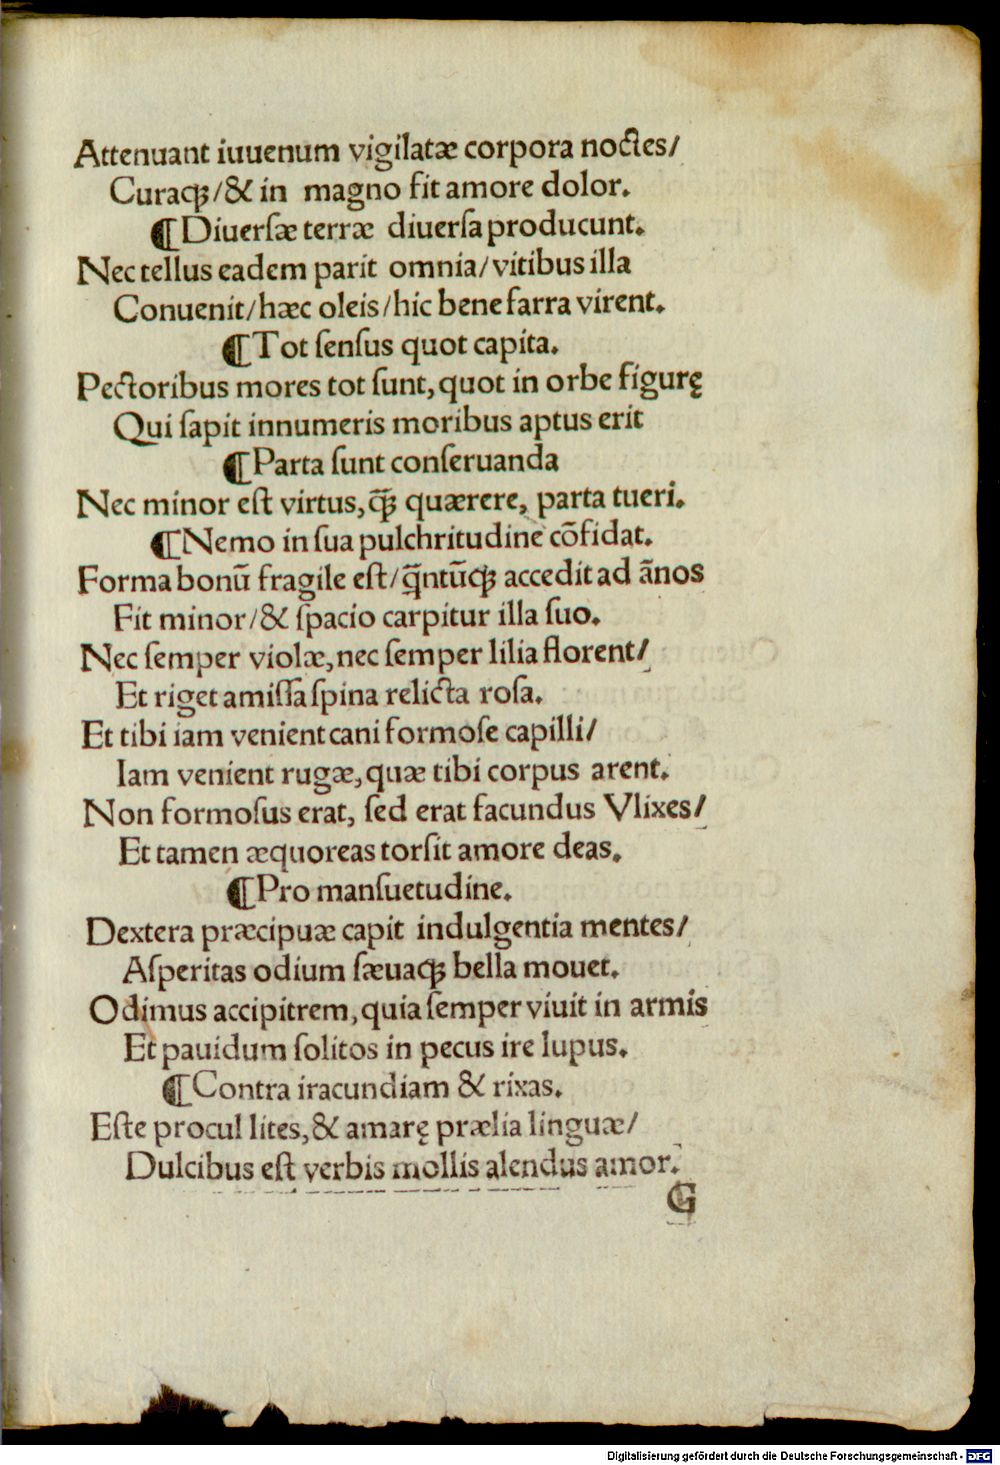 Attenuant iuuenum vigilatæ corpora noctes/
Curaqꝫ/& in magno fit amore dolor.
¶Diuerſæ terræ diuerſa producunt.
Nec tellus eadem parit omnia/vitibus illa
Conuenit/hæc oleis/hic bene farra virent.
¶Tot ſenſus quot capita.
Pectoribus mores tot ſunt, quot in orbe figurę
Qui ſapit innumeris moribus aptus erit
¶Parta ſunt conſeruanda
Nec minor eſt virtus, q̄ꝫ quærere, parta tueri.
¶Nemo in ſua pulchritudine cōfidat.
Forma bonū fragile eſt/q̄ntūcqꝫ accedit ad ānos
Fit minor/& ſpacio carpitur illa ſuo.
Nec ſemper violæ, nec ſemper lilia florent/
Et riget amiſſa ſpina relicta roſa.
Et tibi iam venient cani formoſe capilli/
Iam venient rugæ, quæ tibi corpus arent.
Non formoſus erat, ſed erat facundus Vlixes/
Et tamen æquoreas torſit amore deas.
¶Pro manſuetudine.
Dextera præcipuæ capit indulgentia mentes/
Aſperitas odium ſæuaqꝫ bella mouet.
Odimus accipitrem, quia ſemper viuit in armis
Et pauidum ſolitos in pecus ire lupus.
¶Contra iracundiam & rixas.
Eſte procul lites, & amarę prælia linguæ/
Dulcibus eſt verbis mollis alendus amor.
G
Digitalisierung gefördert durch die Deutsche Forschungsgemeinschaft - DFG